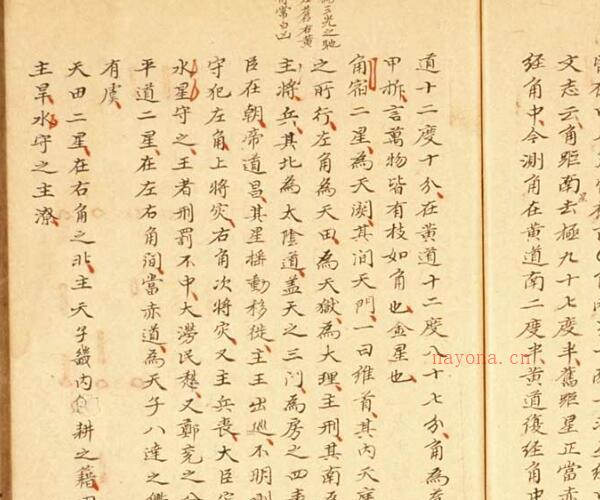 文志云角距南去極九十七度半舊距星正當赤
經角中今測角在黃道南二度半黃道復經角中
三光之馳
道十二度十分在黃道十二度八十七分角為
甲拆言萬物皆有枝如角也金星也
角宿二星為天闕其间天門一曰維首其内天
之所行左角為天田為天獄為大理主刑其南
主將兵其北為太陰道盖天之三门為房之四表
臣在朝帝道昌其星揺動移徙主王出廵不明則
守犯左角上將灾右角次將灾又主兵喪大臣
水星守之王者刑罰不中大澇民愁又鄭兖之分
平道二星在左右角间當赤道為天子八達之衢
有虞
天田二星在右角之北主天子畿内耕之籍田
主旱水守之主潦
nayona.cn